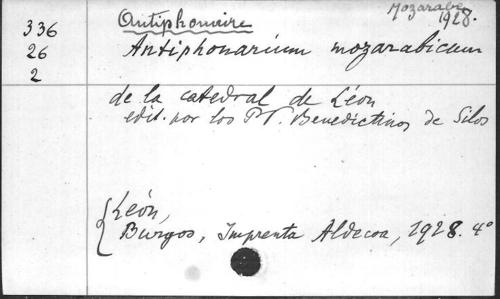 Mozarabe
336 Antiphonaire 1928.
26 Antiphonarium mozarabicum
2
de la catedral de León
edit. por los PP. Benedictinos de Silos
León,
Burgos, Imprenta Aldecoa, 1928. 4°